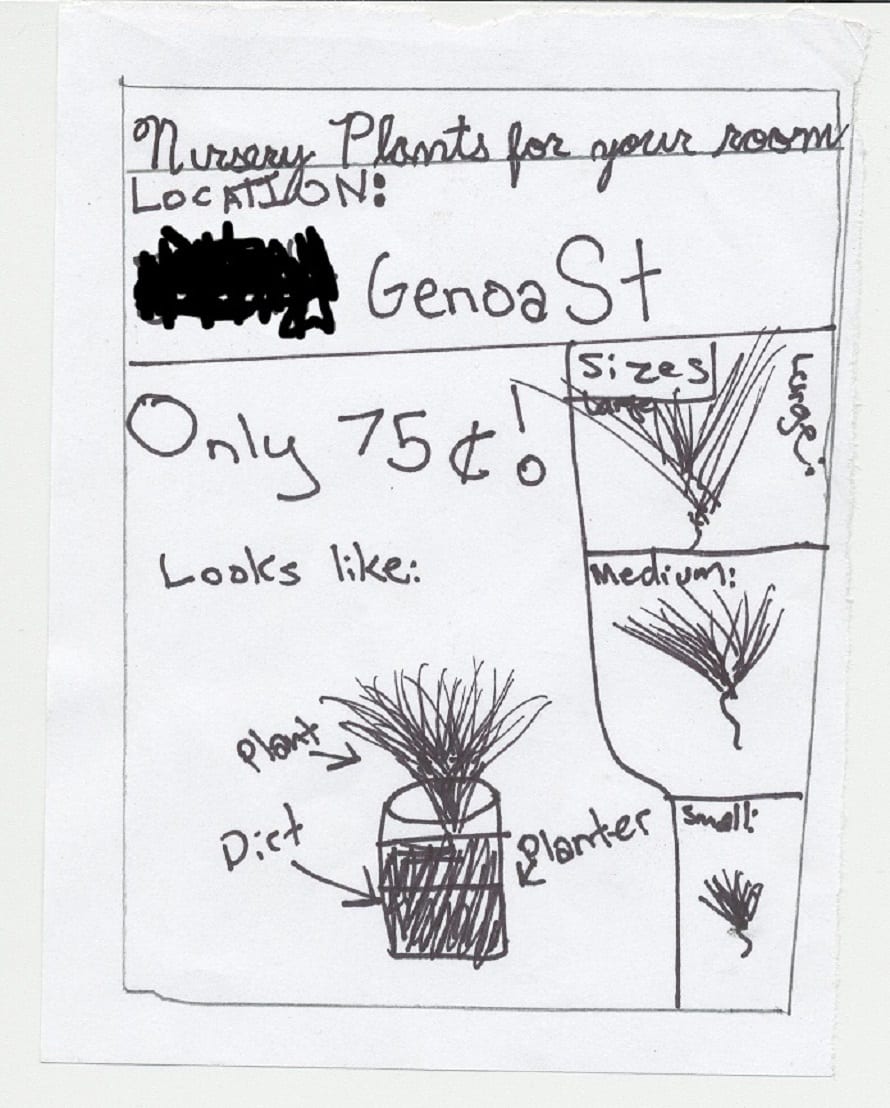 Nursery Plants for your room
LOCATION:
Genoa St
Only 75¢!
Sizes
Large
Large:
Looks like:
Medium:
Plant
Dirt
Planter
Small: